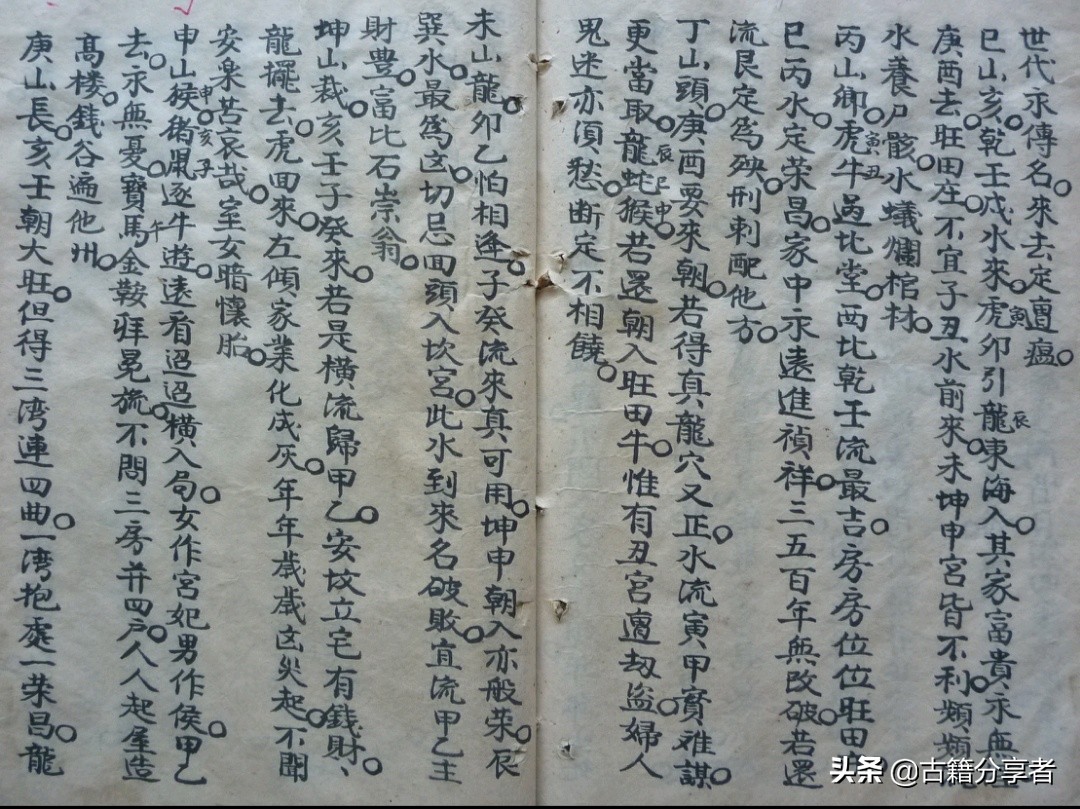 世代永傳名。來去定遭瘟。
巳山亥。乾壬戌水來。虎寅卯引龍辰東海入。其家富貴永無
庚酉去。旺田庄。不宜子丑水前來。未坤申宮皆不利。頻頻
水養尸骸。水蟻爛棺材。
丙山御。虎寅牛丑過北堂。西北乾壬流最吉。房房位位旺田
巳丙水。定荣昌。家中永遠進禎祥。三五百年無改破。若還
流艮定為殃。刑刺配他方。
丁山頭。庚酉要來朝。若得真龍穴又正。水流寅甲實难謀。
更當取。龍辰蛇巳猴申。若還朝入旺田牛。惟有丑宮遭劫盜。婦人
鬼迷亦須愁。断定不相饒。
未山龍。卯乙怕相逢。子癸流來真可用。坤申朝入亦般荣。辰
巽水。最為凶。切忌回頭入坎宮。此水到來名破敗。宜流甲乙主
財豊。富比石崇翁。
坤山裁。亥壬子癸來。若是橫流歸甲乙。安坟立宅有錢財。
龍擺去。虎回來。左傾家業化成灰。年年歲歲凶災起。不聞
安桌苦哀哉。室女暗懷胎。
申山猴申猪亥鼠子逐牛遊。遠看迢迢橫入局。女作宮妃男作侯。甲乙
去。永無憂。寶馬午金鞍拜冕旒。不問三房并四户。人人起屋造
高楼。錢谷遍他州。
庚山長。亥壬朝大旺。但得三湾連四曲。一湾抱處一荣昌。龍
头条 @古籍分享者